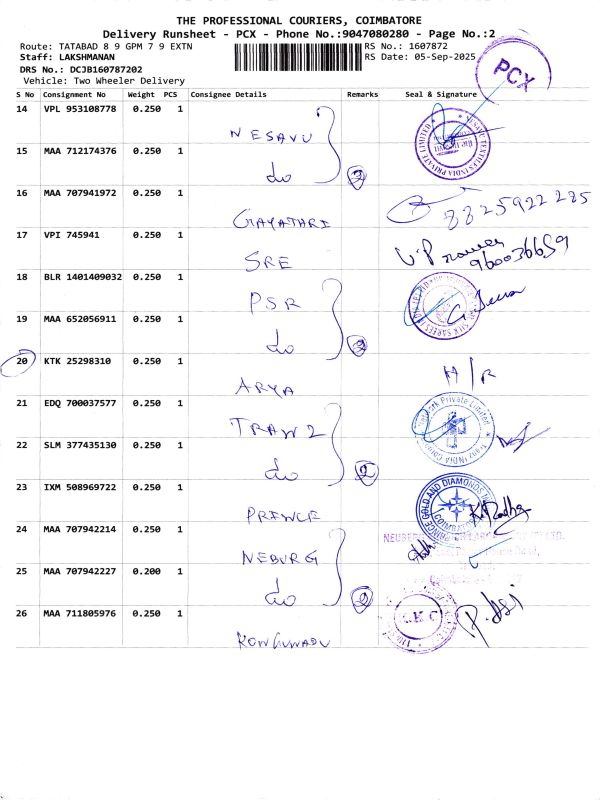 THE PROFESSIONAL COURIERS, COIMBATORE
Delivery Runsheet - PCX - Phone No.:9047080280 - Page No.:2
Route: TATABAD 8 9 GPM 7 9 EXTN RS No.: 1607872
Staff: LAKSHMANAN RS Date: 05-Sep-2025
DRS No.: DCJB160787202
Vehicle: Two Wheeler Delivery
PCX
S No Consignment No Weight PCS Consignee Details Remarks Seal & Signature
14 VPL 953108778 0.250 1
NESAVU
15 MAA 712174376 0.250 1
do 2
16 MAA 707941972 0.250 1
GAYATHRI 8825922285
17 VPI 745941 0.250 1
SRE 960036659
18 BLR 1401409032 0.250 1
PSR
19 MAA 652056911 0.250 1
do 2
20 KTK 25298310 0.250 1
ARYA H/R
21 EDQ 700037577 0.250 1
TRAWZ
22 SLM 377435130 0.250 1
do 2
23 IXM 508969722 0.250 1
PRINCE
PRINCE GOLD AND DIAMONDS
COIMBATORE
K. Radha
24 MAA 707942214 0.250 1
NEBURG
25 MAA 707942227 0.200 1
do 2
26 MAA 711805976 0.250 1
KONGUNADU